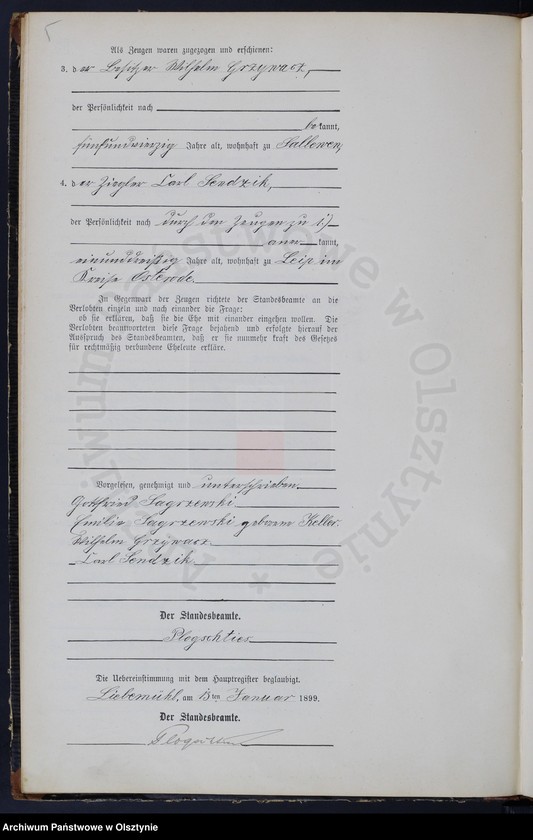 5
Als Zeugen waren zugezogen und erschienen:
3. der Besitzer Wilhelm Grzywacz,
der Persönlichkeit nach
bekannt,
fünfundvierzig Jahre alt, wohnhaft zu Sallewen;
4. der Ziegler Carl Sendzik,
der Persönlichkeit nach durch den Zeugen zu 3)
anerkannt,
Jahre alt, wohnhaft zu Leip im
Kreise Osterode.
In Gegenwart der Zeugen richtete der Standesbeamte an die
Verlobten einzeln und nach einander die Frage:
ob sie erklären, daß sie die Ehe mit einander eingehen wollen. Die
Verlobten beantworteten diese Frage bejahend und erfolgte hierauf der
Ausspruch des Standesbeamten, daß er sie nunmehr kraft des Gesetzes
für rechtmäßig verbundene Eheleute erkläre.
Vorgelesen, genehmigt und unterschrieben.
Gottfried Sagrzewski
Emilie Sagrzewski geborene Keller.
Wilhelm Grzywacz
Carl Sendzik
Der Standesbeamte.
Plogschties
Die Uebereinstimmung mit dem Hauptregister beglaubigt.
Liebemühl, am 13ten Januar 1899.
Der Standesbeamte.
Archiwum Państwowe w Olsztynie
Archiwum Państwowe w Olsztynie